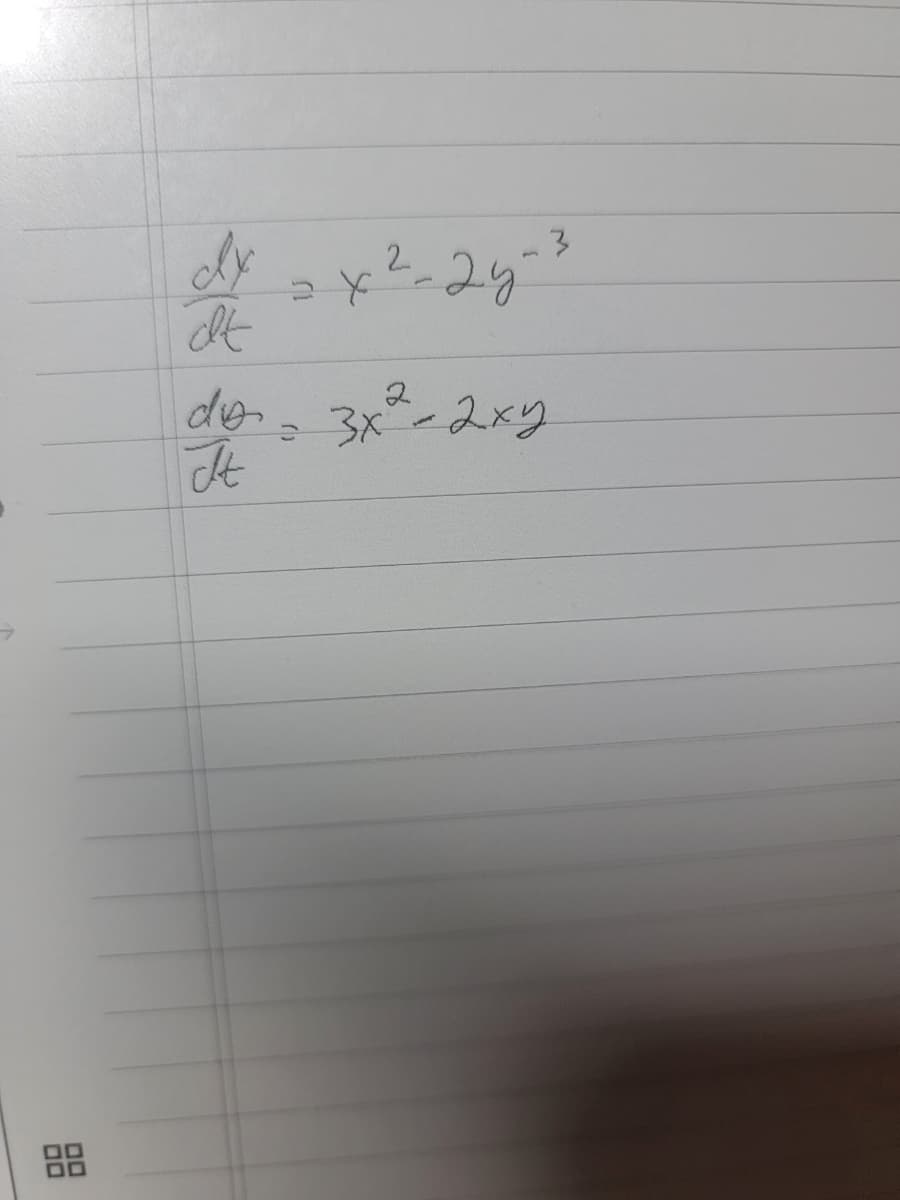 dx/dt = x² - 2y⁻³
/dt = 3x² - 2xy